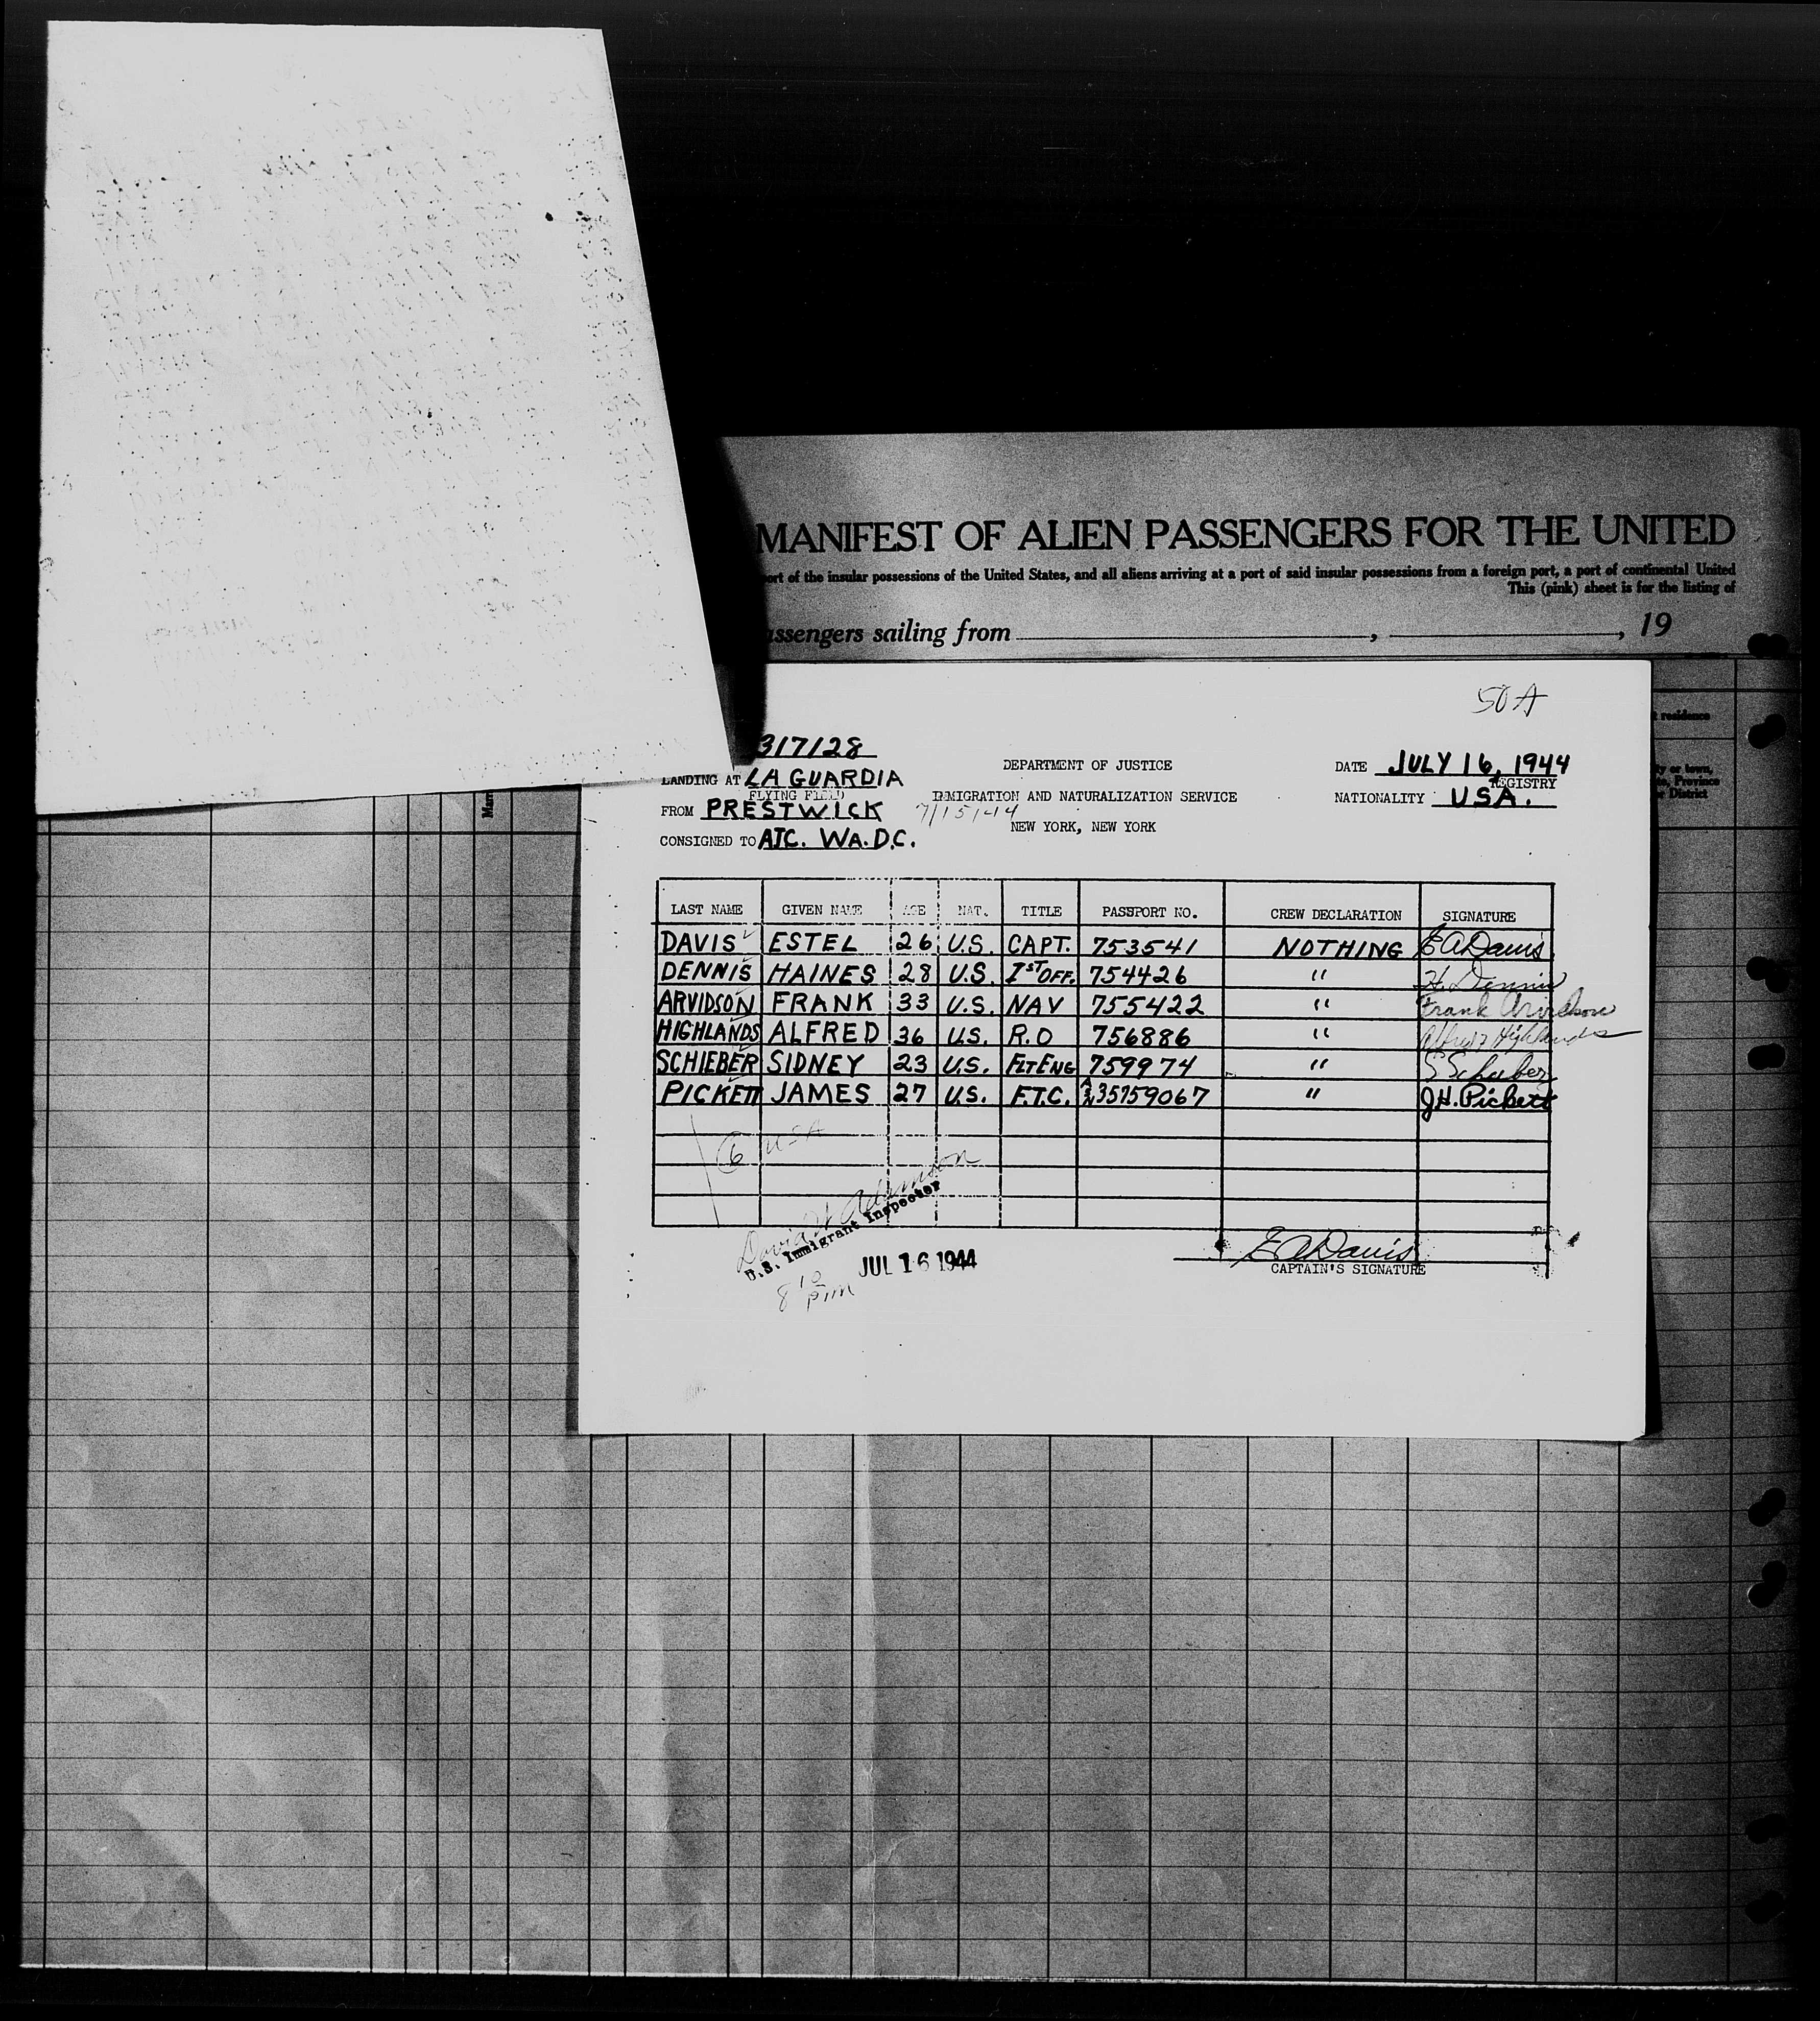 MANIFEST OF ALIEN PASSENGERS FOR THE UNITED
ort of the insular possessions of the United States, and all aliens arriving at a port of said insular possessions from a foreign port, a port of continental United
This (pink) sheet is for the listing of
assengers sailing from , , 19
50A
residence
y or town,
te, Province
or District
317128
LANDING AT LA GUARDIA
FLYING FIELD
FROM PRESTWICK 7/15/44
CONSIGNED TO ATC. WA. D.C.
DEPARTMENT OF JUSTICE
IMMIGRATION AND NATURALIZATION SERVICE
NEW YORK, NEW YORK
DATE JULY 16, 1944
REGISTRY
NATIONALITY USA.
LAST NAME GIVEN NAME AGE NAT. TITLE PASSPORT NO. CREW DECLARATION SIGNATURE
DAVIS ESTEL 26 U.S. CAPT. 753541 NOTHING E A Davis
DENNIS HAINES 28 U.S. 1ST OFF. 754426 " H. Dennis
ARVIDSON FRANK 33 U.S. NAV 755422 " Frank Arvidson
HIGHLANDS ALFRED 36 U.S. R.O 756886 " Alfred Highlands
SCHIEBER SIDNEY 23 U.S. FLT ENG 759974 " S Schieber
PICKETT JAMES 27 U.S. F.T.C. ASN 35759067 " J.H. Pickett
6 USA
David H Adamson
U.S. Immigrant Inspector
JUL 16 1944
8 10 pm
E A Davis
CAPTAIN'S SIGNATURE